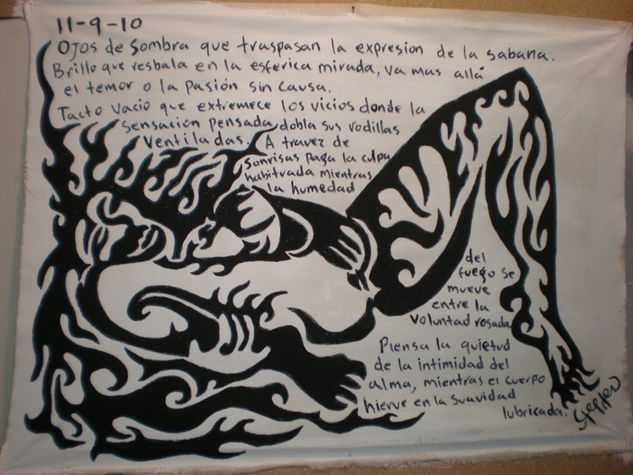 11-9-10
Ojos de Sombra que traspasan la expresion de la sabana.
Brillo que resbala en la esferica mirada, va mas allá
el temor o la pasión sin causa.
Tacto vacio que extremece los vicios donde la
sensación pensada dobla sus rodillas
ventiladas. A travez de
sonrisas paga la culpa
habituada mientras
la humedad
del
fuego se
mueve
entre la
voluntad rosada
Piensa la quietud
de la intimidad del
alma, mientras el cuerpo
hierve en la suavidad
lubricada.